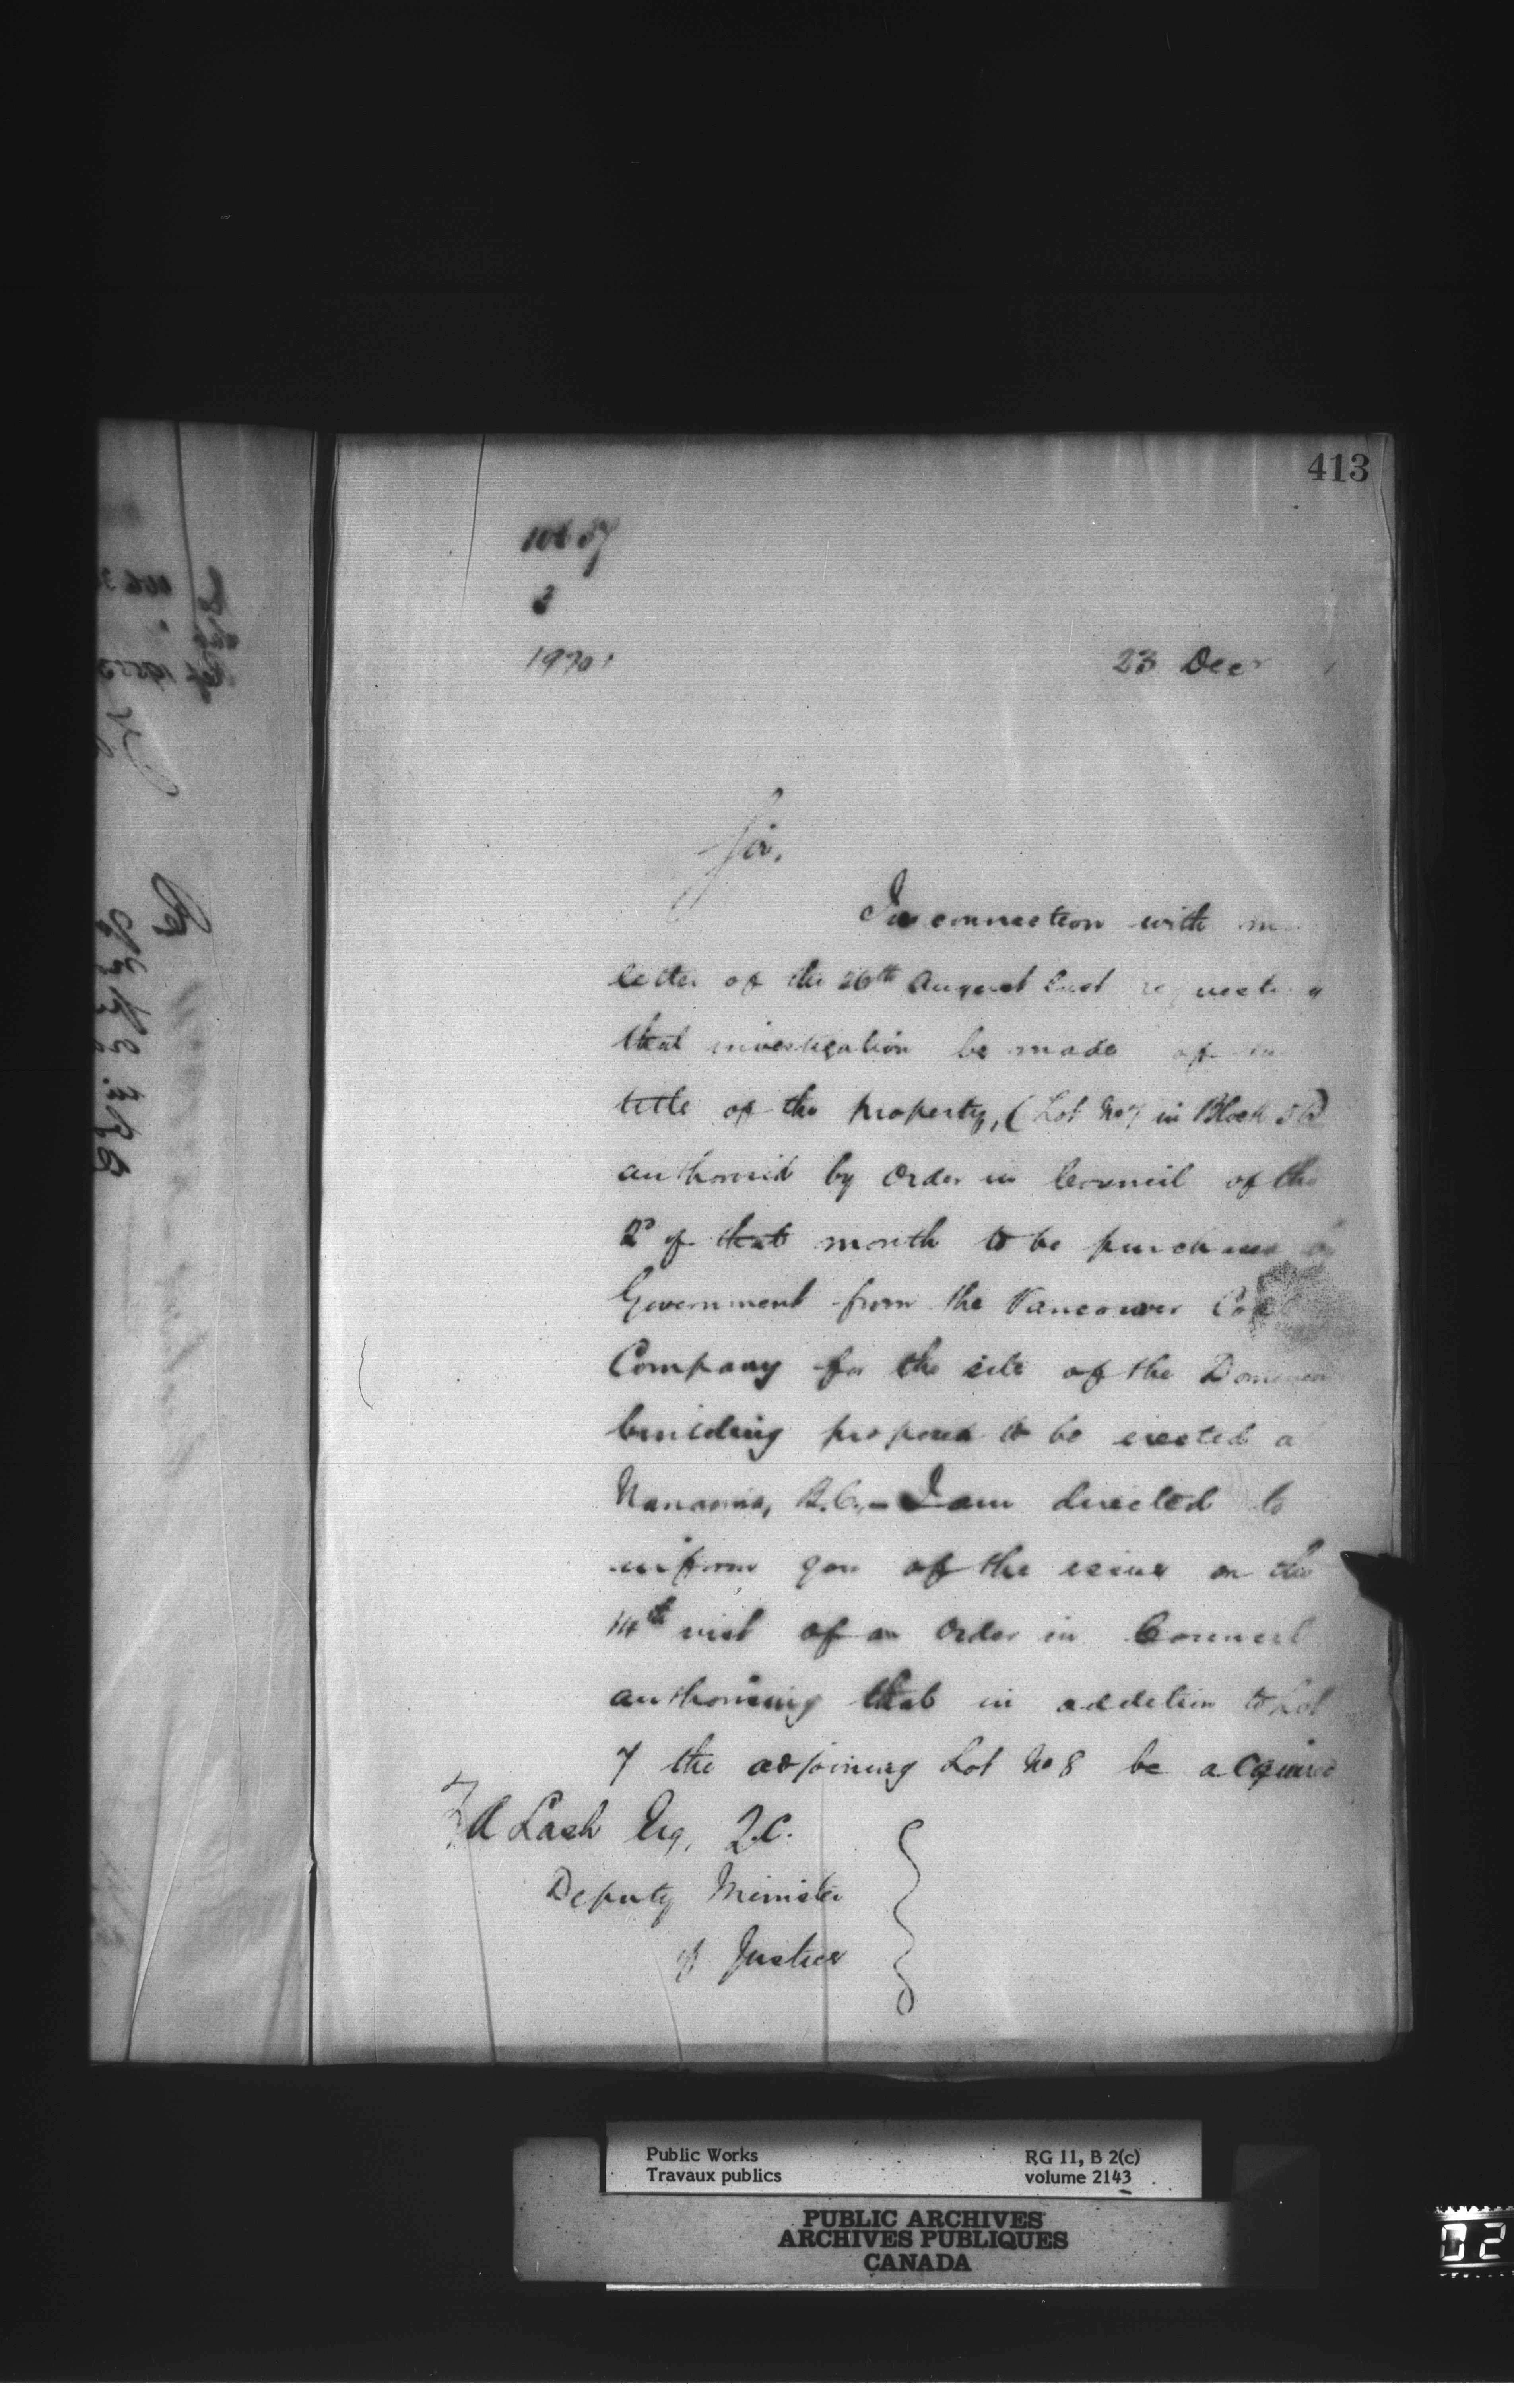 413
3
23 Decr
Sir,
In connection with
letter of the 26th August last requesting
that investigation be made of
title of the property, (Lot No 7 in Block
authorised by Order in Council of the
2d of that month to be purchased by
Government from the Vancouver Coal
Company for the site of the Dominion
building proposed to be erected a
Nanaimo, B.C., - I am directed to
inform you of the issue on the
14th inst of an Order in Council
authorising that in addition to Lot
7 the adjoining Lot No 8 be acquired
A Lash Esq, Q.C.
Deputy Minister
of Justice
Public Works
Travaux publics
RG 11, B 2(c)
volume 2143
PUBLIC ARCHIVES
ARCHIVES PUBLIQUES
CANADA
02